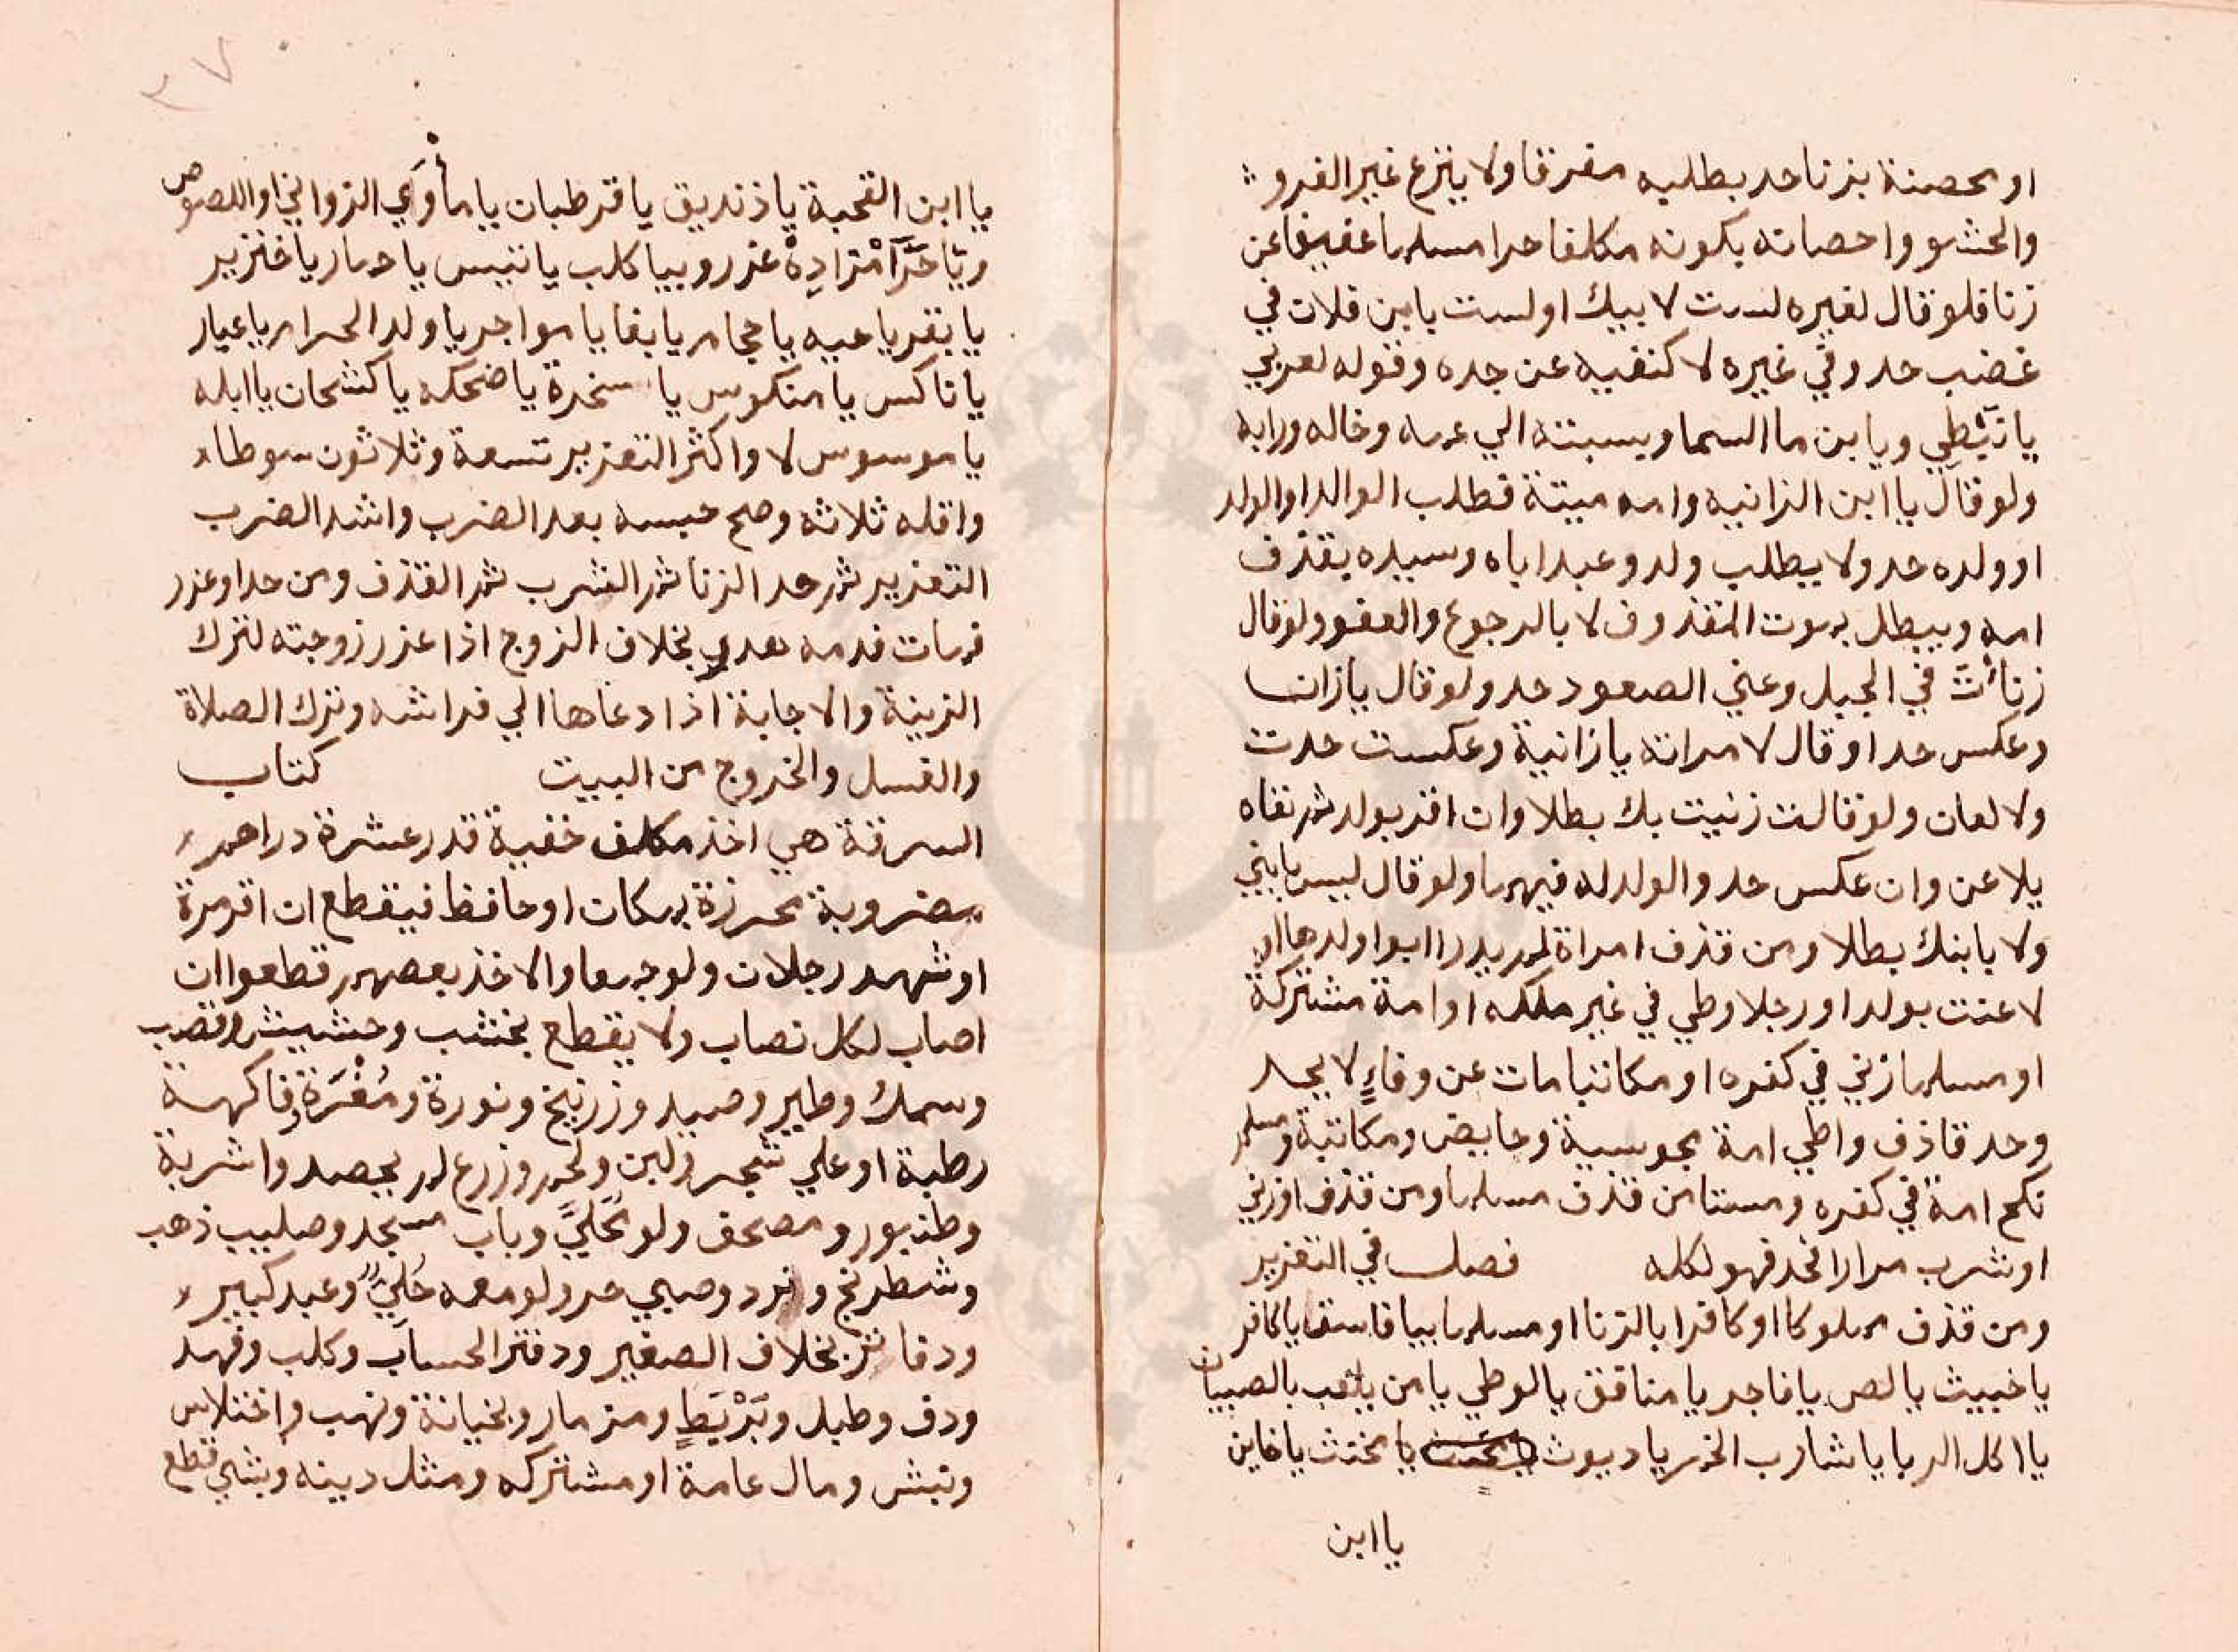 او محصنة بزنا حد بطلبه مفرقا ولا ينزع غير الفرو
والحشو واحصانه بكونه مكلفا حرا مسلما عفيفا عن
زنا فلو قال لغيره لست لابيك او لست يابن فلان في
غضب حد وفي غيره لا كنفيه عن جده وقوله لعربي
يا نبطي ويابن ما السما ويسبته الي عمه وخاله ورابه
ولو قال يا ابن الزانيه وامه ميتة فطلب الوالد او الولد
او ولده حد ولا يطلب ولد وعبد اباه وسيده بقذف
امه ويبطل بموت المقذوف لا بالرجوع والعفو ولو قال
زنأت في الجبل وعني الصعود حد ولو قال يا زان
وعكس حدا وقال لامراته يا زانية وعكست حدت
ولا لعان ولو قالت زنيت بك بطلا وان اقر بولد ثم نفاه
يلاعن وان عكس حد والولد له فيهما ولو قال ليس بابني
ولا بابنك بطلا ومن قذف امراة لم يدر ابو ولدها او
لاعنت بولد او رجلا وطي في غير ملكه او امة مشتركة
او مسلما زني في كفره او مكاتبا مات عن وفاء لا يحد
وحد قاذف واطي امة مجوسية وحايض ومكاتبة ومسلم
نكح امة في كفره ومستامن قذف مسلما ومن قذف او زني
او شرب مرارا فحد فهو لكله فصل في التعزير
ومن قذف مملوكا او كافرا بالزنا او مسلما بيا فاسق يا كافر
يا خبيث يا لص يا فاجر يا منافق يا لوطي يا من يلعب بالصبيان
يا اكل الربا يا شارب الخمر يا ديوث يا مخنث يا مخنث يا خاين
يا ابن
٣٧
يا ابن القحبة يا زنديق يا قرطبان يا مأوي الزواني او اللصوص
ويا حرامزاده عزر وبيا كلب يا تيس يا حمار يا خنزير
يا بقر يا حيه يا حجام يا بغا يا مواجر يا ولد الحرام يا عيار
يا ناكس يا منكوس يا سخرة يا ضحكه يا كشحان يا ابله
يا موسوس لا واكثر التعزير تسعة وثلاثون سوطا
واقله ثلاثه وصح حبسه بعد الضرب واشد الضرب
التعزير ثم حد الزنا ثم الشرب ثم القذف ومن حد او عزر
فمات فدمه هدر بخلاف الزوج اذا عزر زوجته لترك
الزينة والاجابة اذا دعاها الي فراشه وترك الصلاة
والغسل والخروج من البيت كتاب
السرقة هي اخذ مكلف خفية قدر عشرة دراهم
مضروبة محرزة بمكان او حافظ فيقطع ان اقر مرة
او شهد رجلان ولو جمعا والاخذ بعضهم قطعوا ان
اصاب لكل نصاب ولا يقطع بخشب وحشيش وقصب
وسمك وطير وصيد وزرنيخ ونورة ومغرة وفاكهة
رطبة او علي شجر ولبن ولحم وزرع لم يحصد واشربة
وطنبور ومصحف ولو محلي وباب مسجد وصليب ذهب
وشطرنج ونرد وصبي حر ولو معه حلي وعبد كبير
ودفاتر بخلاف الصغير ودفتر الحساب وكلب وفهد
ودف وطبل وبربط ومزمار وبخيانة ونهب واختلاس
ونبش ومال عامة او مشتركه ومثل دينه وبشي قطع